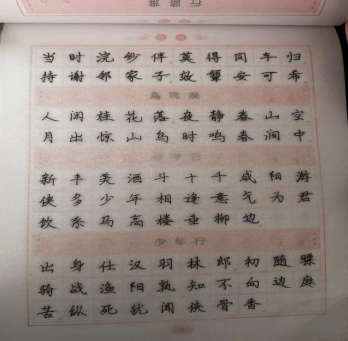 行路难
当时浣纱伴莫得同车归
持谢邻家子效颦安可希
鸟鸣涧
人闲桂花落夜静春山空
月出惊山鸟时鸣春涧中
少年行
新丰美酒斗十千咸阳游
侠多少年相逢意气为君
饮系马高楼垂柳边
少年行
出身仕汉羽林郎初随骠
骑战渔阳孰知不向边庭
苦纵死犹闻侠骨香